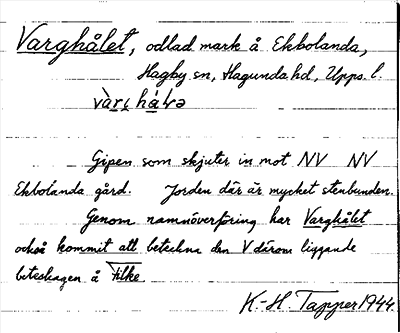 Varghålet, odlad mark å Ekbolanda,
Hagby sn, Hagunda hd, Upps. l.
vàrɩ hálə
Gipen som skjuter in mot NV NV
Ekbolanda gård. Jorden där är mycket stenbunden.
Genom namnöverföring har Varghålet
också kommit att beteckna den V därom liggande
beteshagen å Filke.
K.-H. Tapper 1944.